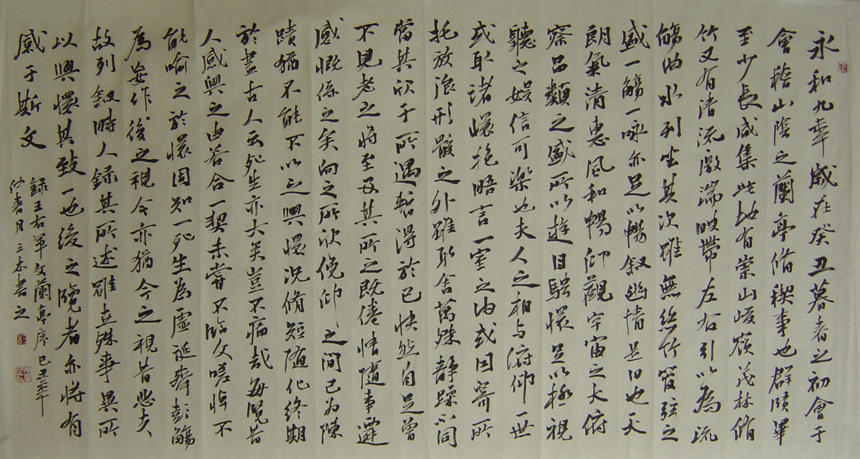 永和九年歲在癸丑暮春之初會于
會稽山陰之蘭亭脩稧事也群賢畢
至少長咸集此地有崇山峻嶺茂林脩
竹又有清流激湍映帶左右引以為流
觴曲水列坐其次雖無絲竹管弦之
盛一觴一詠亦足以暢敘幽情是日也天
朗氣清惠風和暢仰觀宇宙之大俯
察品類之盛所以遊目騁懷足以極視
聽之娛信可樂也夫人之相與俯仰一世
或取諸懷抱晤言一室之內或因寄所
托放浪形骸之外雖取舍萬殊靜躁不同
當其欣于所遇暫得於己快然自足曾
不見老之將至及其所之既倦情隨事遷
感慨係之矣向之所欣俛仰之間已為陳
蹟猶不能不以之興懷況脩短隨化終期
於盡古人云死生亦大矣豈不痛哉每覽昔
人感興之由若合一契未嘗不臨文嗟悼不
能喻之於懷固知一死生為虛誕齊彭觴
為妄作後之視今亦猶今之視昔悲夫
故列敘時人錄其所述雖世殊事異所
以興懷其致一也後之覽者亦將有
感于斯文
錄王右軍文蘭亭序己丑年
仲春月三木書之